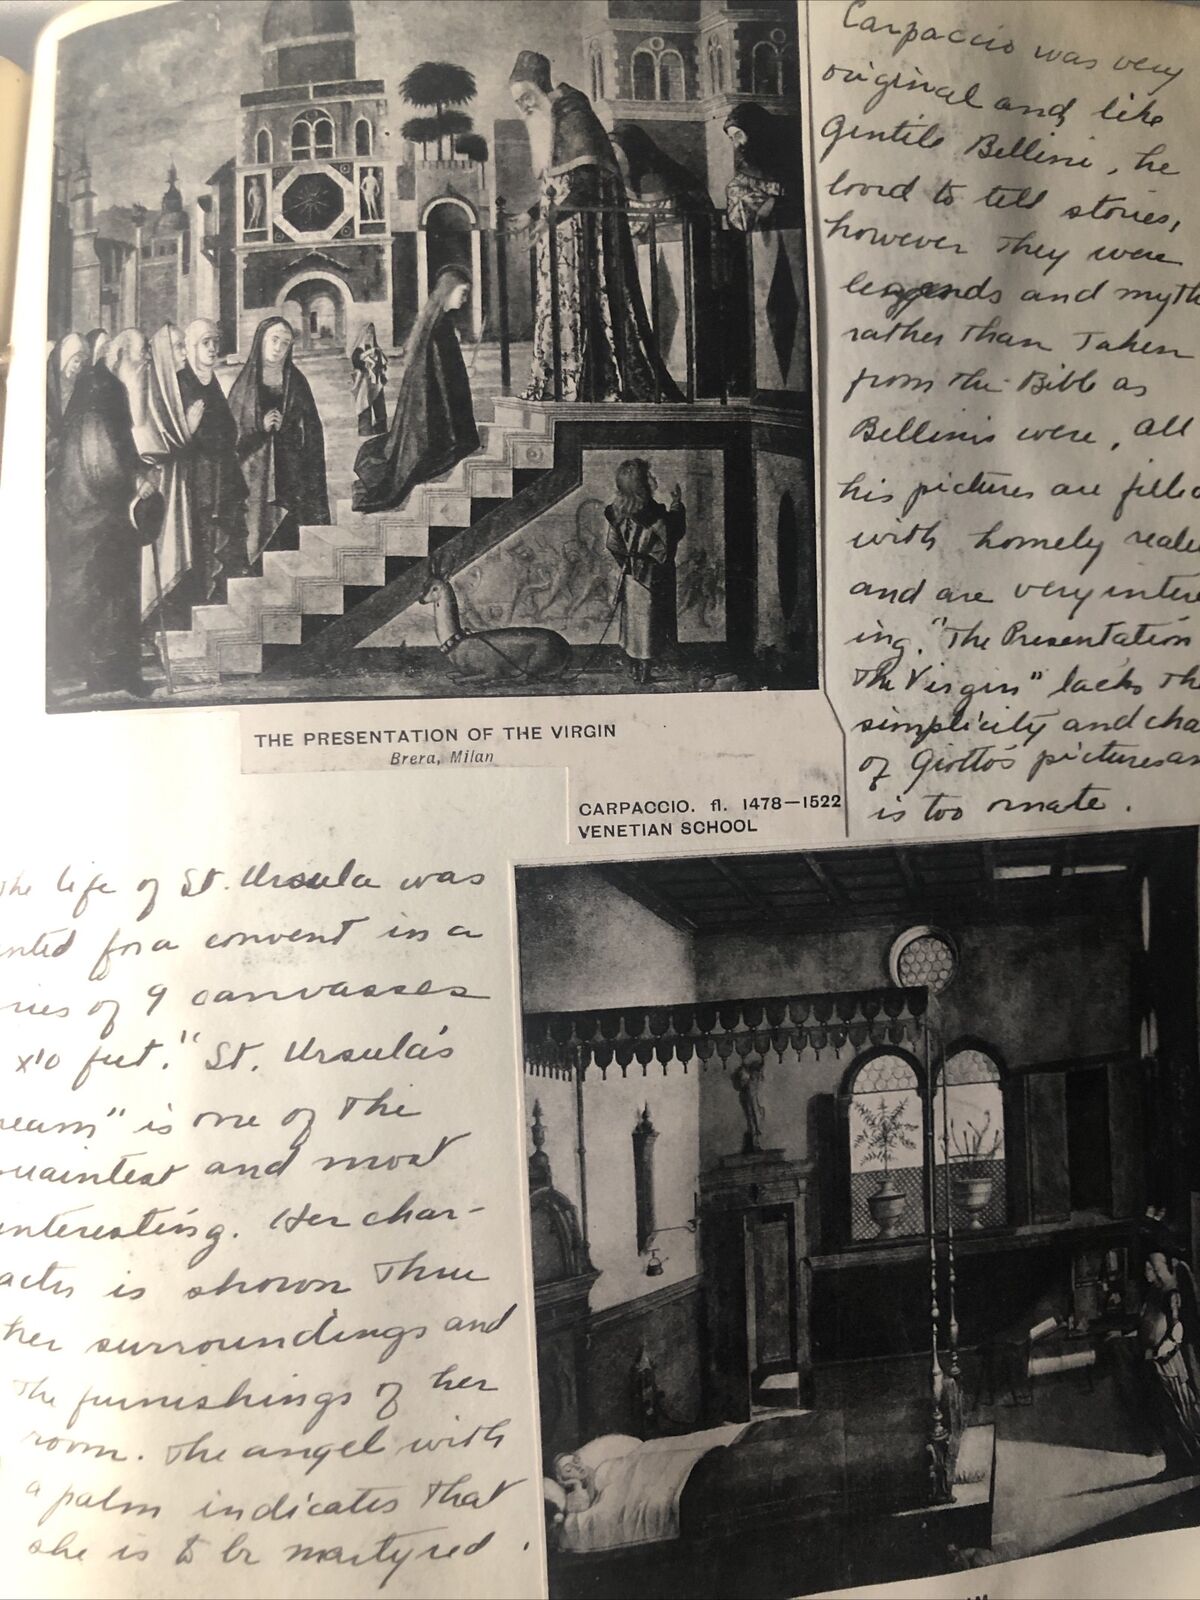 Carpaccio was very
original and like
Gentile Bellini, he
loved to tell stories,
however they were
legends and myth
rather than taken
from the Bible as
Bellinis were, all
his pictures are fille
with homely reali
and are very intere
ing. "The Presentation
The Virgin" lacks the
simplicity and cha
of Giotto's pictures an
is too ornate.
THE PRESENTATION OF THE VIRGIN
Brera, Milan
CARPACCIO. fl. 1478—1522
VENETIAN SCHOOL
The life of St. Ursula was
inted for a convent in a
ries of 9 canvasses
x10 feet." St. Ursula's
ream" is one of the
uaintest and most
interesting. Her char-
acter is shown thru
her surroundings and
the furnishings of her
room. The angel with
a palm indicates that
she is to be martyred.